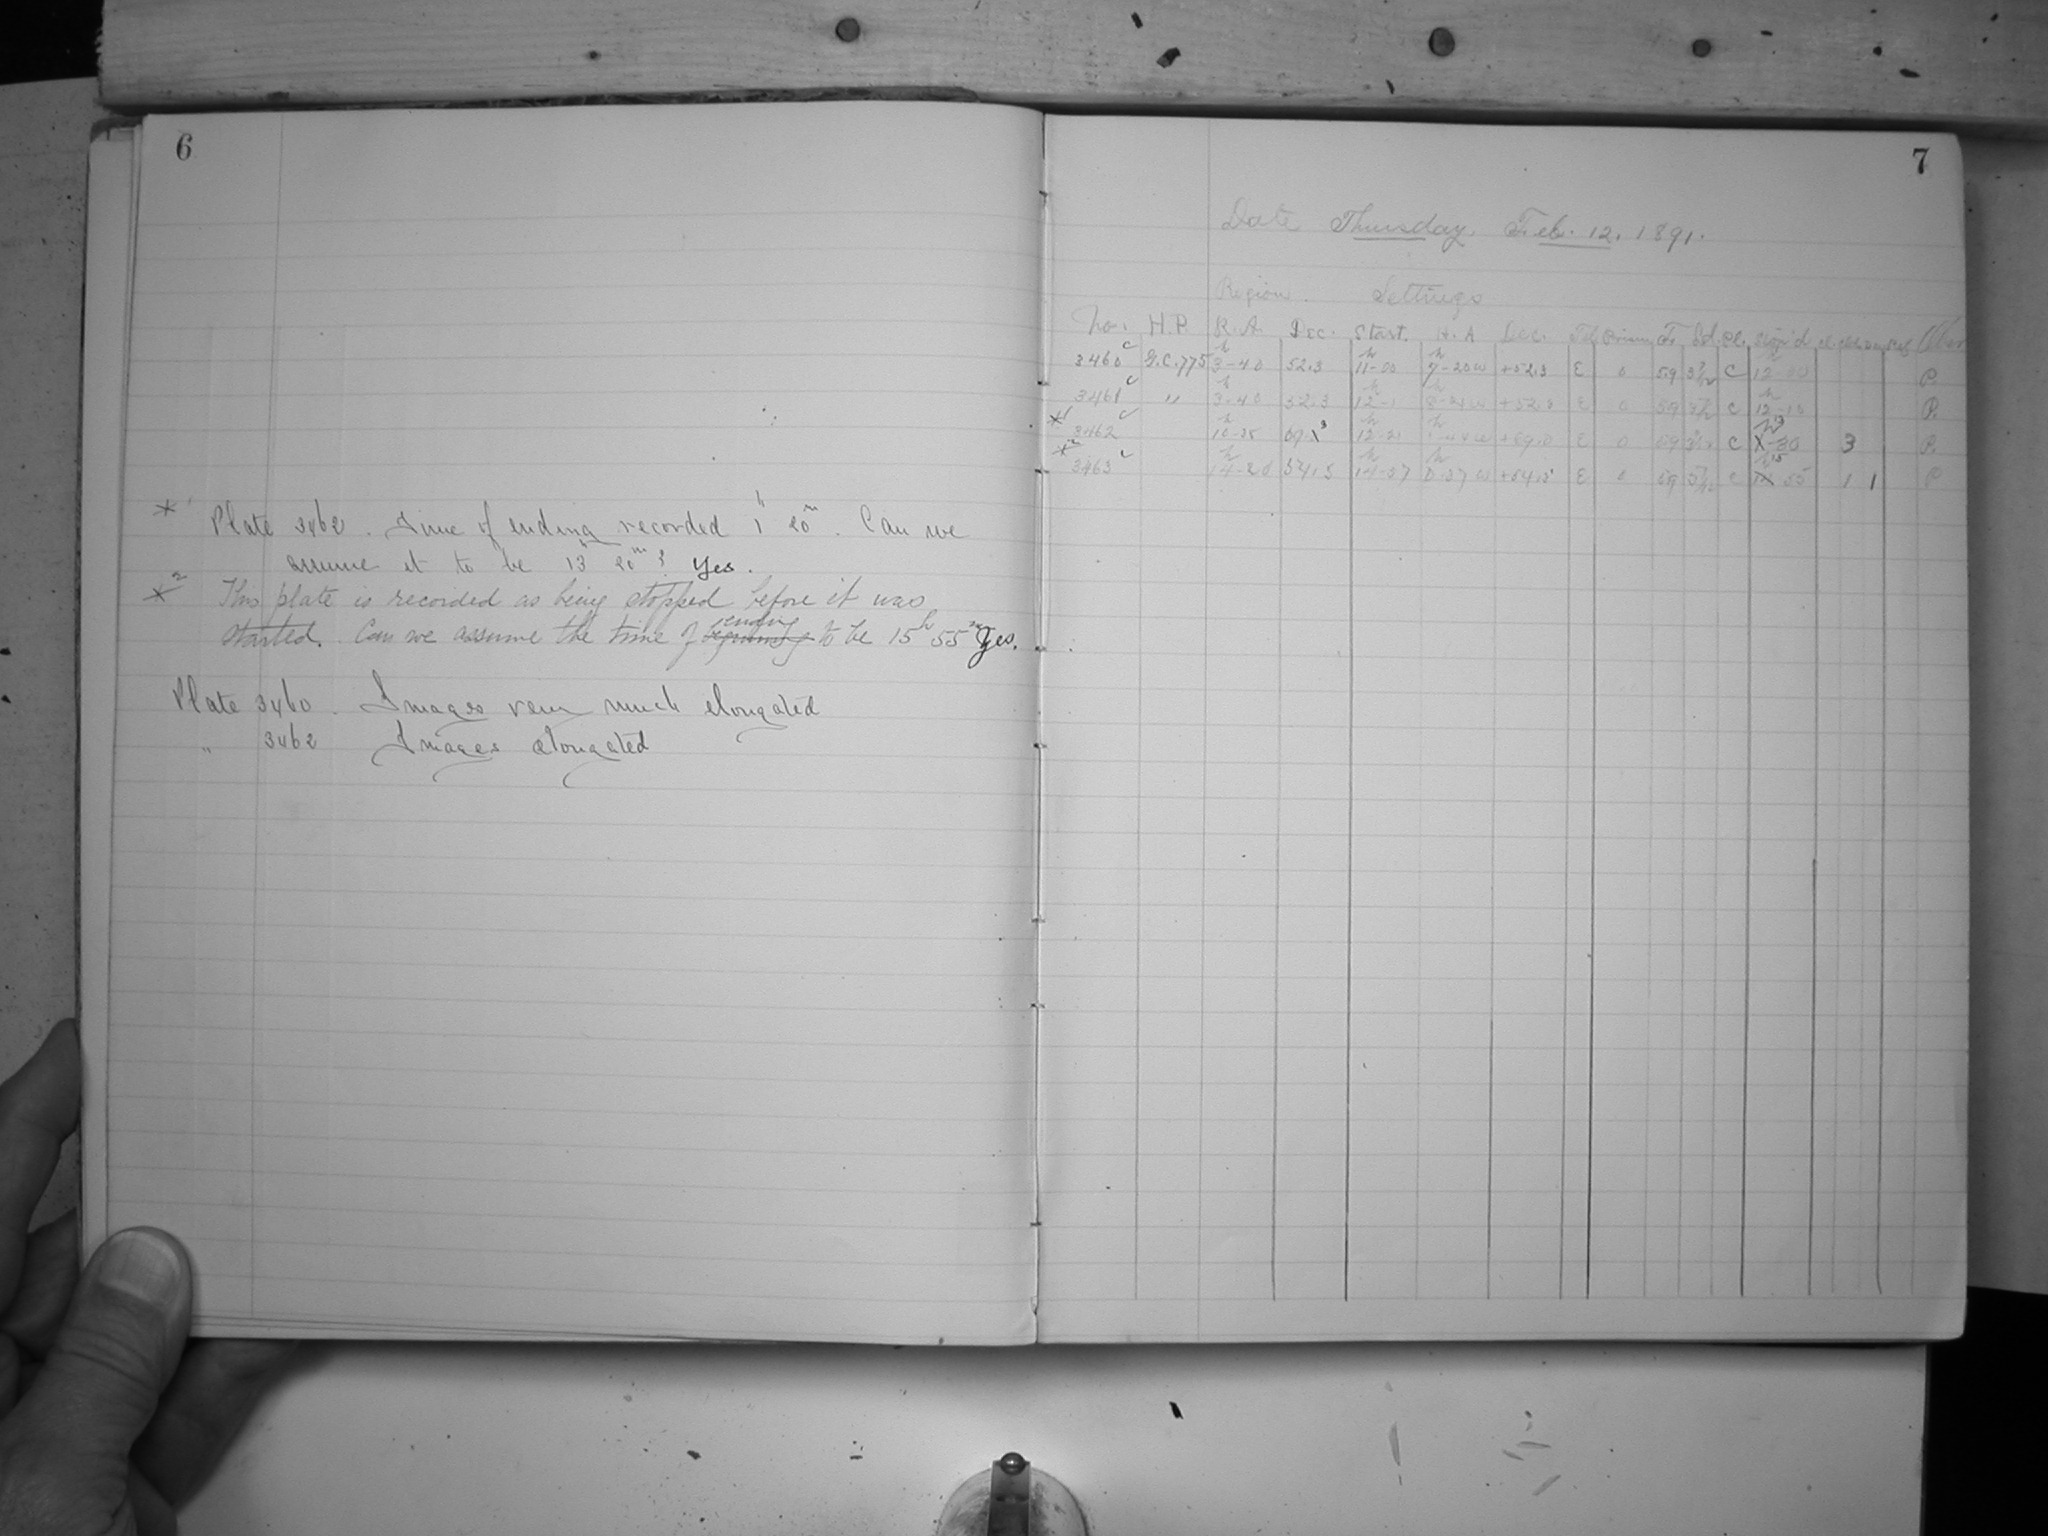 6
*1 Plate 3462. Time of ending recorded 1h 20m. Can we
assume it to be 13h 20m? Yes.
*2 This plate is recorded as being stopped before it was
started. Can we assume the time of ending to be 15h 55m Yes.
Plate 3460. Images very much elongated
" 3462 Images elongated
7
Date Thursday. Feb. 12. 1891.
Region. Settings
No. H.P. R.A. Dec. Start. H.A Dec. Stop'd
3460c G.C.775 3h-40 52.3 11h-20 7h-20w +52.3 E 0 59 C 12 P.
3461c " 3h-40 52.3 12h-1 +52.3 E 0 59 C 12h-10 P.
*1 3462c 10h-25 12h-21 +59.0 E 0 59 C 13h 3 P.
*2 3463c 14h-20 54.5 14h-57 0h-37w +54.5 E 0 59 C 15h 55 1 1 P